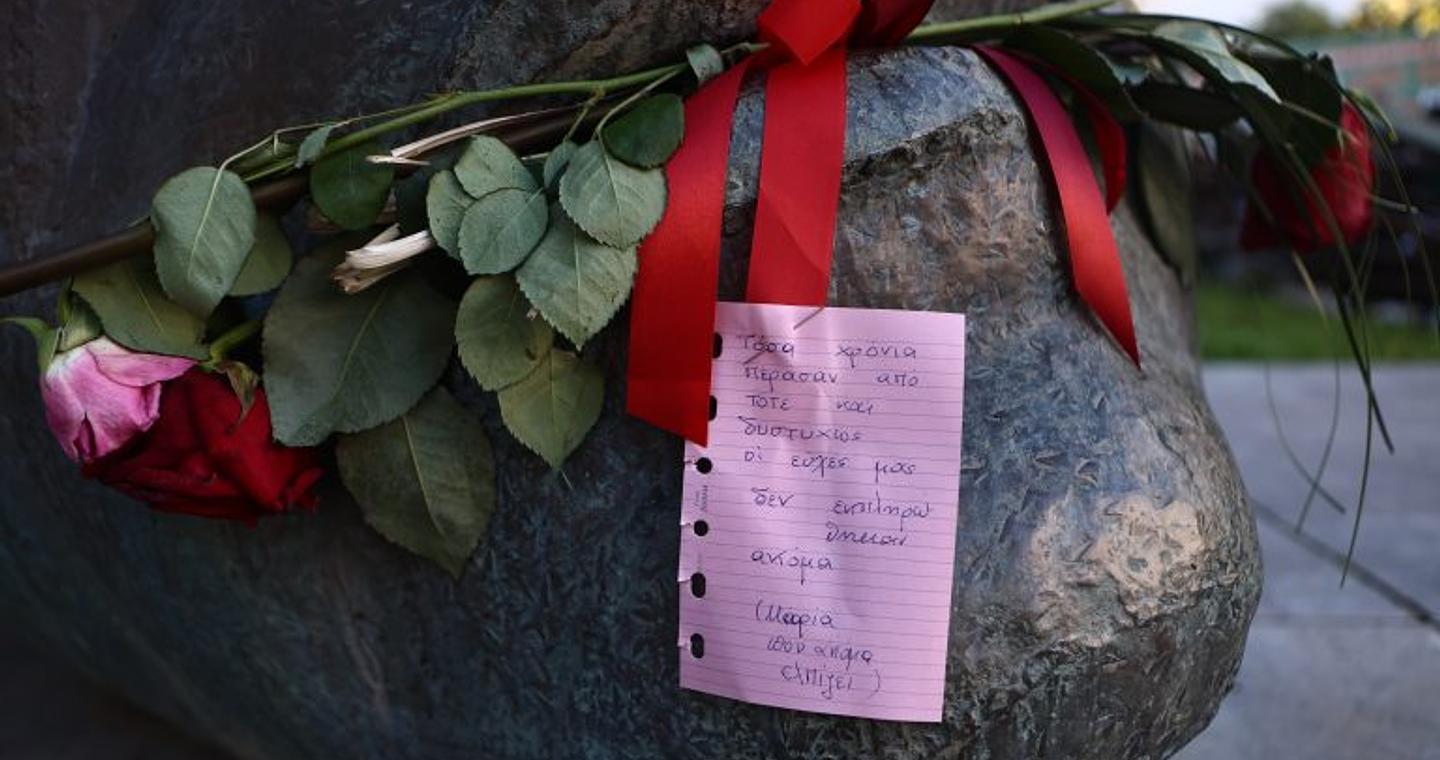 Τόσα χρόνια
πέρασαν από
τότε και
δυστυχώς
οι ευχές μας
δεν
ακόμα
(Μαρία
που ακόμα
ελπίζει)